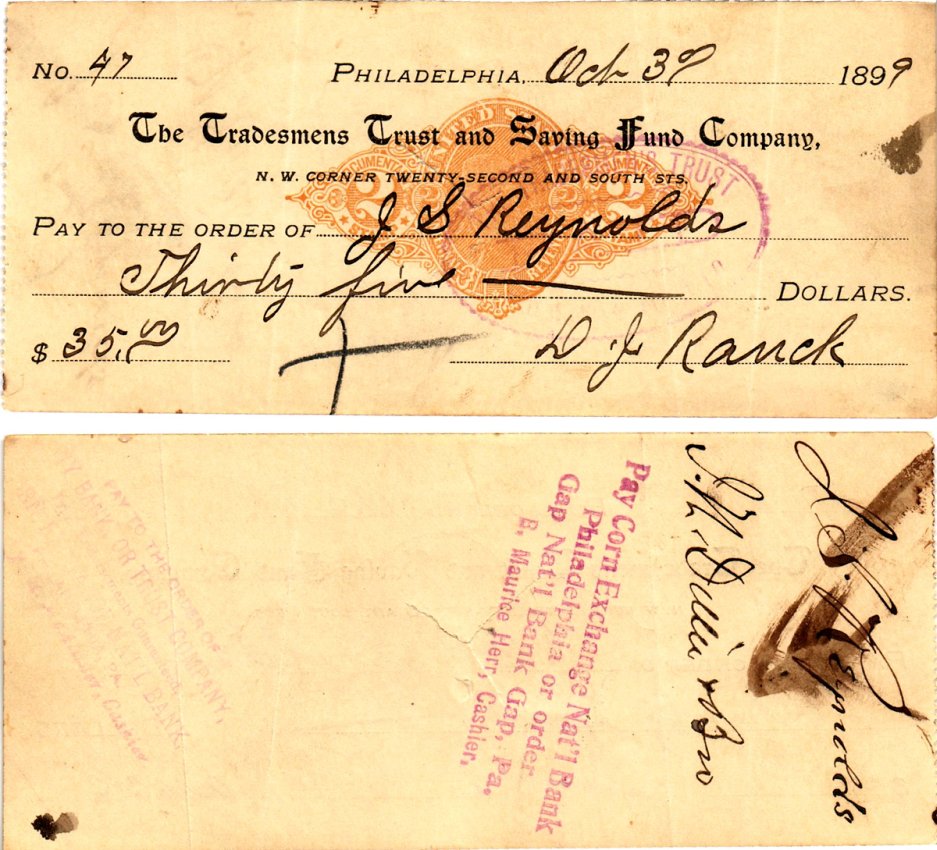 No. 47 PHILADELPHIA, Oct 30 1899
The Tradesmens Trust and Saving Fund Company,
N. W. CORNER TWENTY-SECOND AND SOUTH STS.
PAY TO THE ORDER OF J S Reynolds
Thirty five DOLLARS.
$ 35.00 D J Ranck
UNITED
DOCUMENTARY
2 2
TRUST
J. S. Reynolds
Bro
Pay Corn Exchange Nat'l Bank
Philadelphia or order
Gap Nat'l Bank Gap, Pa.
B. Maurice Herr, Cashier.
PAY TO THE ORDER OF
ANY BANK OR TRUST COMPANY,
NAT'L BANK